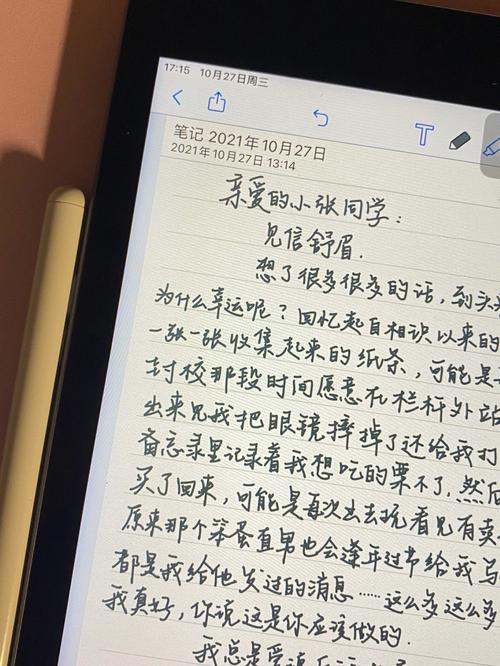 17:15 10月27日周三
T
笔记 2021年10月27日
2021年10月27日 13:14
亲爱的小张同学：
见信舒眉.
想了很多很多的话，到头
为什么幸运呢？回忆起自相识以来的
一张一张收集起来的纸条，可能是
封校那段时间愿意在栏杆外站
出来见我把眼镜摔掉了还给我打
备忘录里记录着我想吃的栗不了.然后
买了回来，可能是再次出去玩看见有卖
原来那个笨蛋直男也会逢年过节给我写
都是我给他发过的消息……这么多这么多
我真好，你说这是你应该做的.
我总是爱